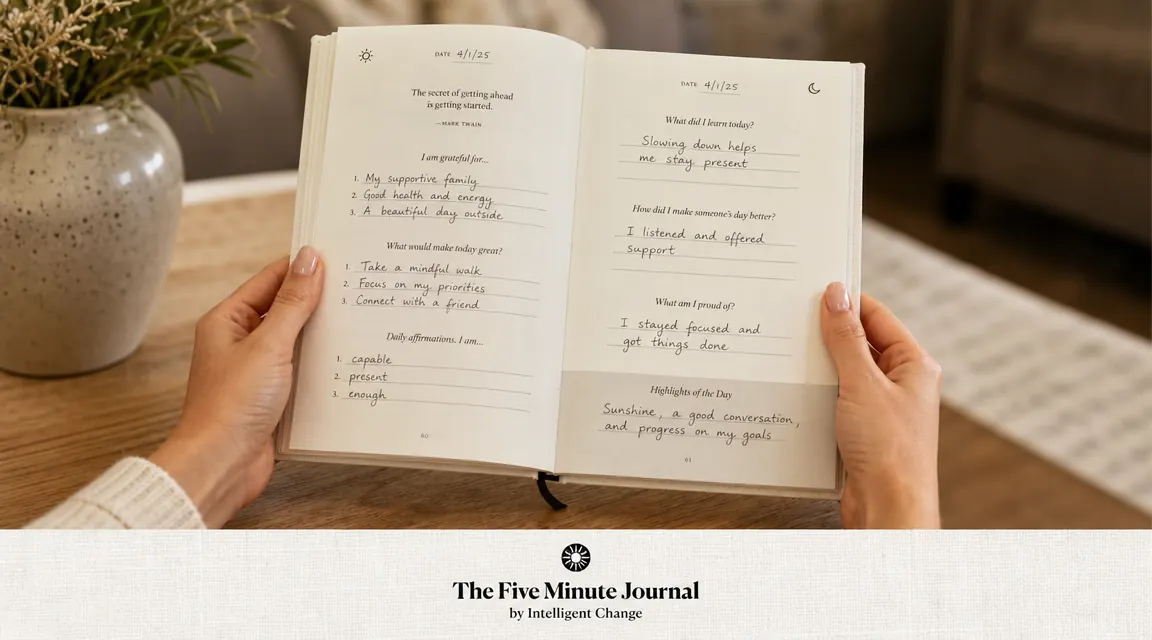 DATE 4/1/25
The secret of getting ahead
is getting started.
—MARK TWAIN
I am grateful for...
1. My supportive family
2. Good health and energy
3. A beautiful day outside
What would make today great?
1. Take a mindful walk
2. Focus on my priorities
3. Connect with a friend
Daily affirmations. I am...
1. capable
2. present
3. enough
60
DATE 4/1/25
What did I learn today?
Slowing down helps
me stay present
How did I make someone's day better?
I listened and offered
support
What am I proud of?
I stayed focused and
got things done
Highlights of the Day
Sunshine, a good conversation,
and progress on my goals
61
The Five Minute Journal
by Intelligent Change